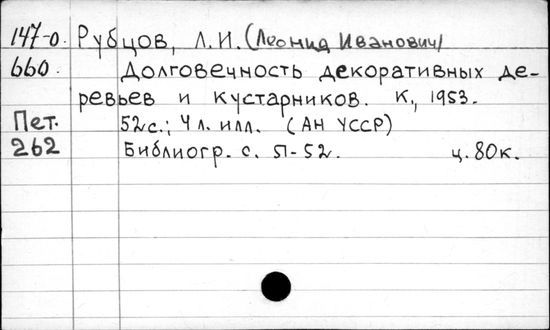 147-0. Рубцов, Л.И. (Леонид Иванович)
660. Долговечность декоративных де-
ревьев и кустарников. К., 1953.
Пет. 52с.; 4 л. илл. (АН УССР)
262 Библиогр. с. 51-52. ц. 80к.